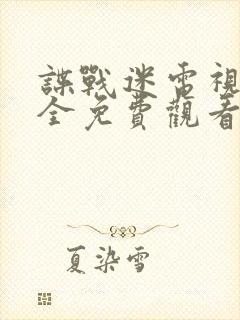 諜戰迷雷視
全免費觀看
夏染雪